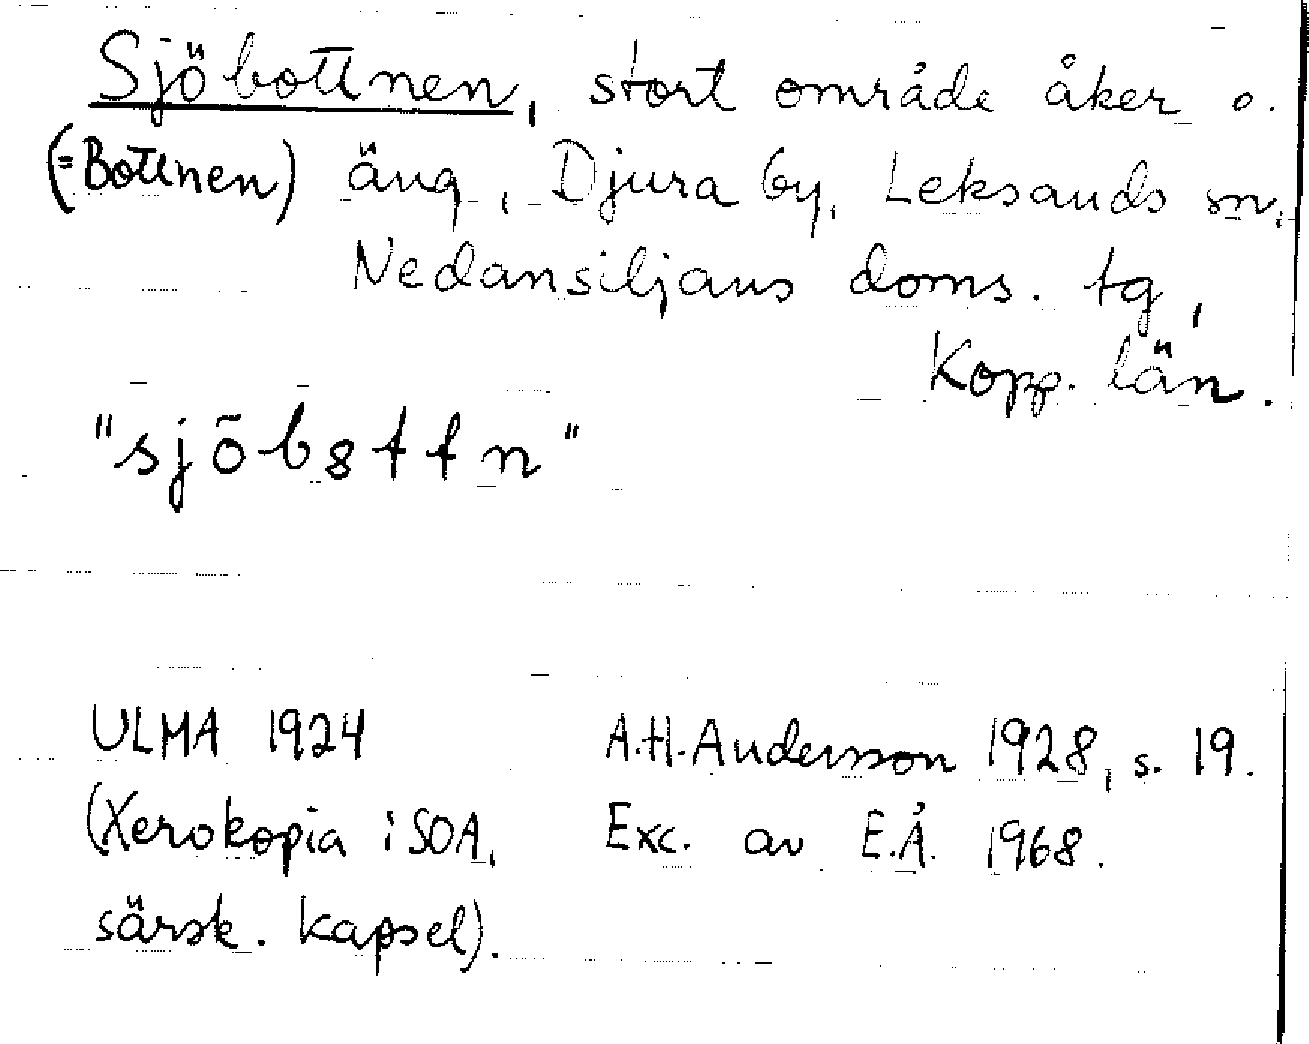 Sjöbottnen, stort område åker o.
(=Bottnen) äng, Djura by, Leksands sn,
Nedansiljans doms. tg,
Kopp. län.
"sjōb8ttn"
ULMA 1924 A.H. Andersson 1928, s. 19.
(Xerokopia i SOA, Exc. av E.Å. 1968.
särsk. kapsel).